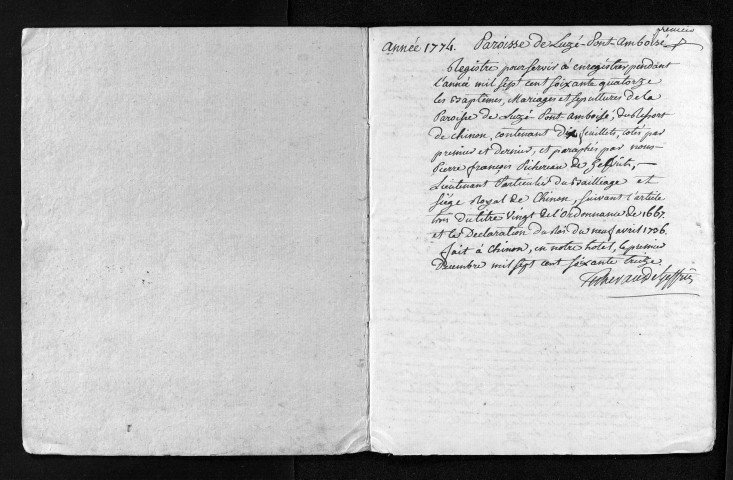 premier
Année 1774. Paroisse de Luzé-Pont-Amboisé
Registre pour servir à enregistrer pendant
l'année mil sept cent soixante quatorze
les Baptêmes, Mariages et sepultures de la
Paroisse de Luzé Pont-amboisé, du Ressort
de Chinon, contenant dix feuillets, cotés par
premier et dernier, et paraphés par nous
Pierre françois Pichereau de
Lieutenant Particulier du Bailliage et
siége Royal de Chinon, suivant l'article
trois du titre Vingt de l'Ordonnance de 1667.
et la Declaration du Roi du neuf avril 1736.
fait à Chinon, en notre hotel, le premier
Decembre mil sept cent soixante treize.